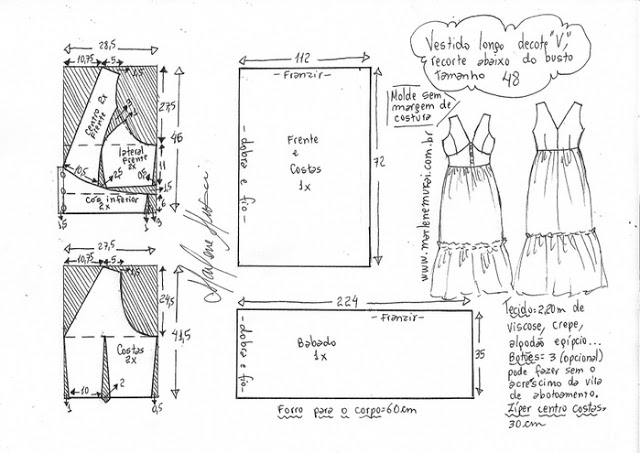 Vestido longo decote "V",
recorte abaixo do busto
Tamanho 48
Molde sem
margem de
costura
www.marlenemurai.com.br
28,5
10,75
5
1,5
27,5
46
Centro Frente 2x
3
lateral
Frente
2x
11
10,5
2,5
0,5
1,5
6
cos inferior
2x
1,5
1
3
27,5
10,75
5
1,5
24,5
41,5
Costas
2x
10
2
1
0,5
112
- Franzir -
- dobra e fio -
Frente
e
Costas
1x
72
224
- Franzir -
- dobra e fio -
Babado
1x
35
Forro para o corpo=60cm
Tecido=2,20m de
viscose, crepe,
algodão egípcio...
Botões= 3 (opcional)
pode fazer sem o
acréscimo da vista
de abotoamento.
Zíper centro costas=
30cm